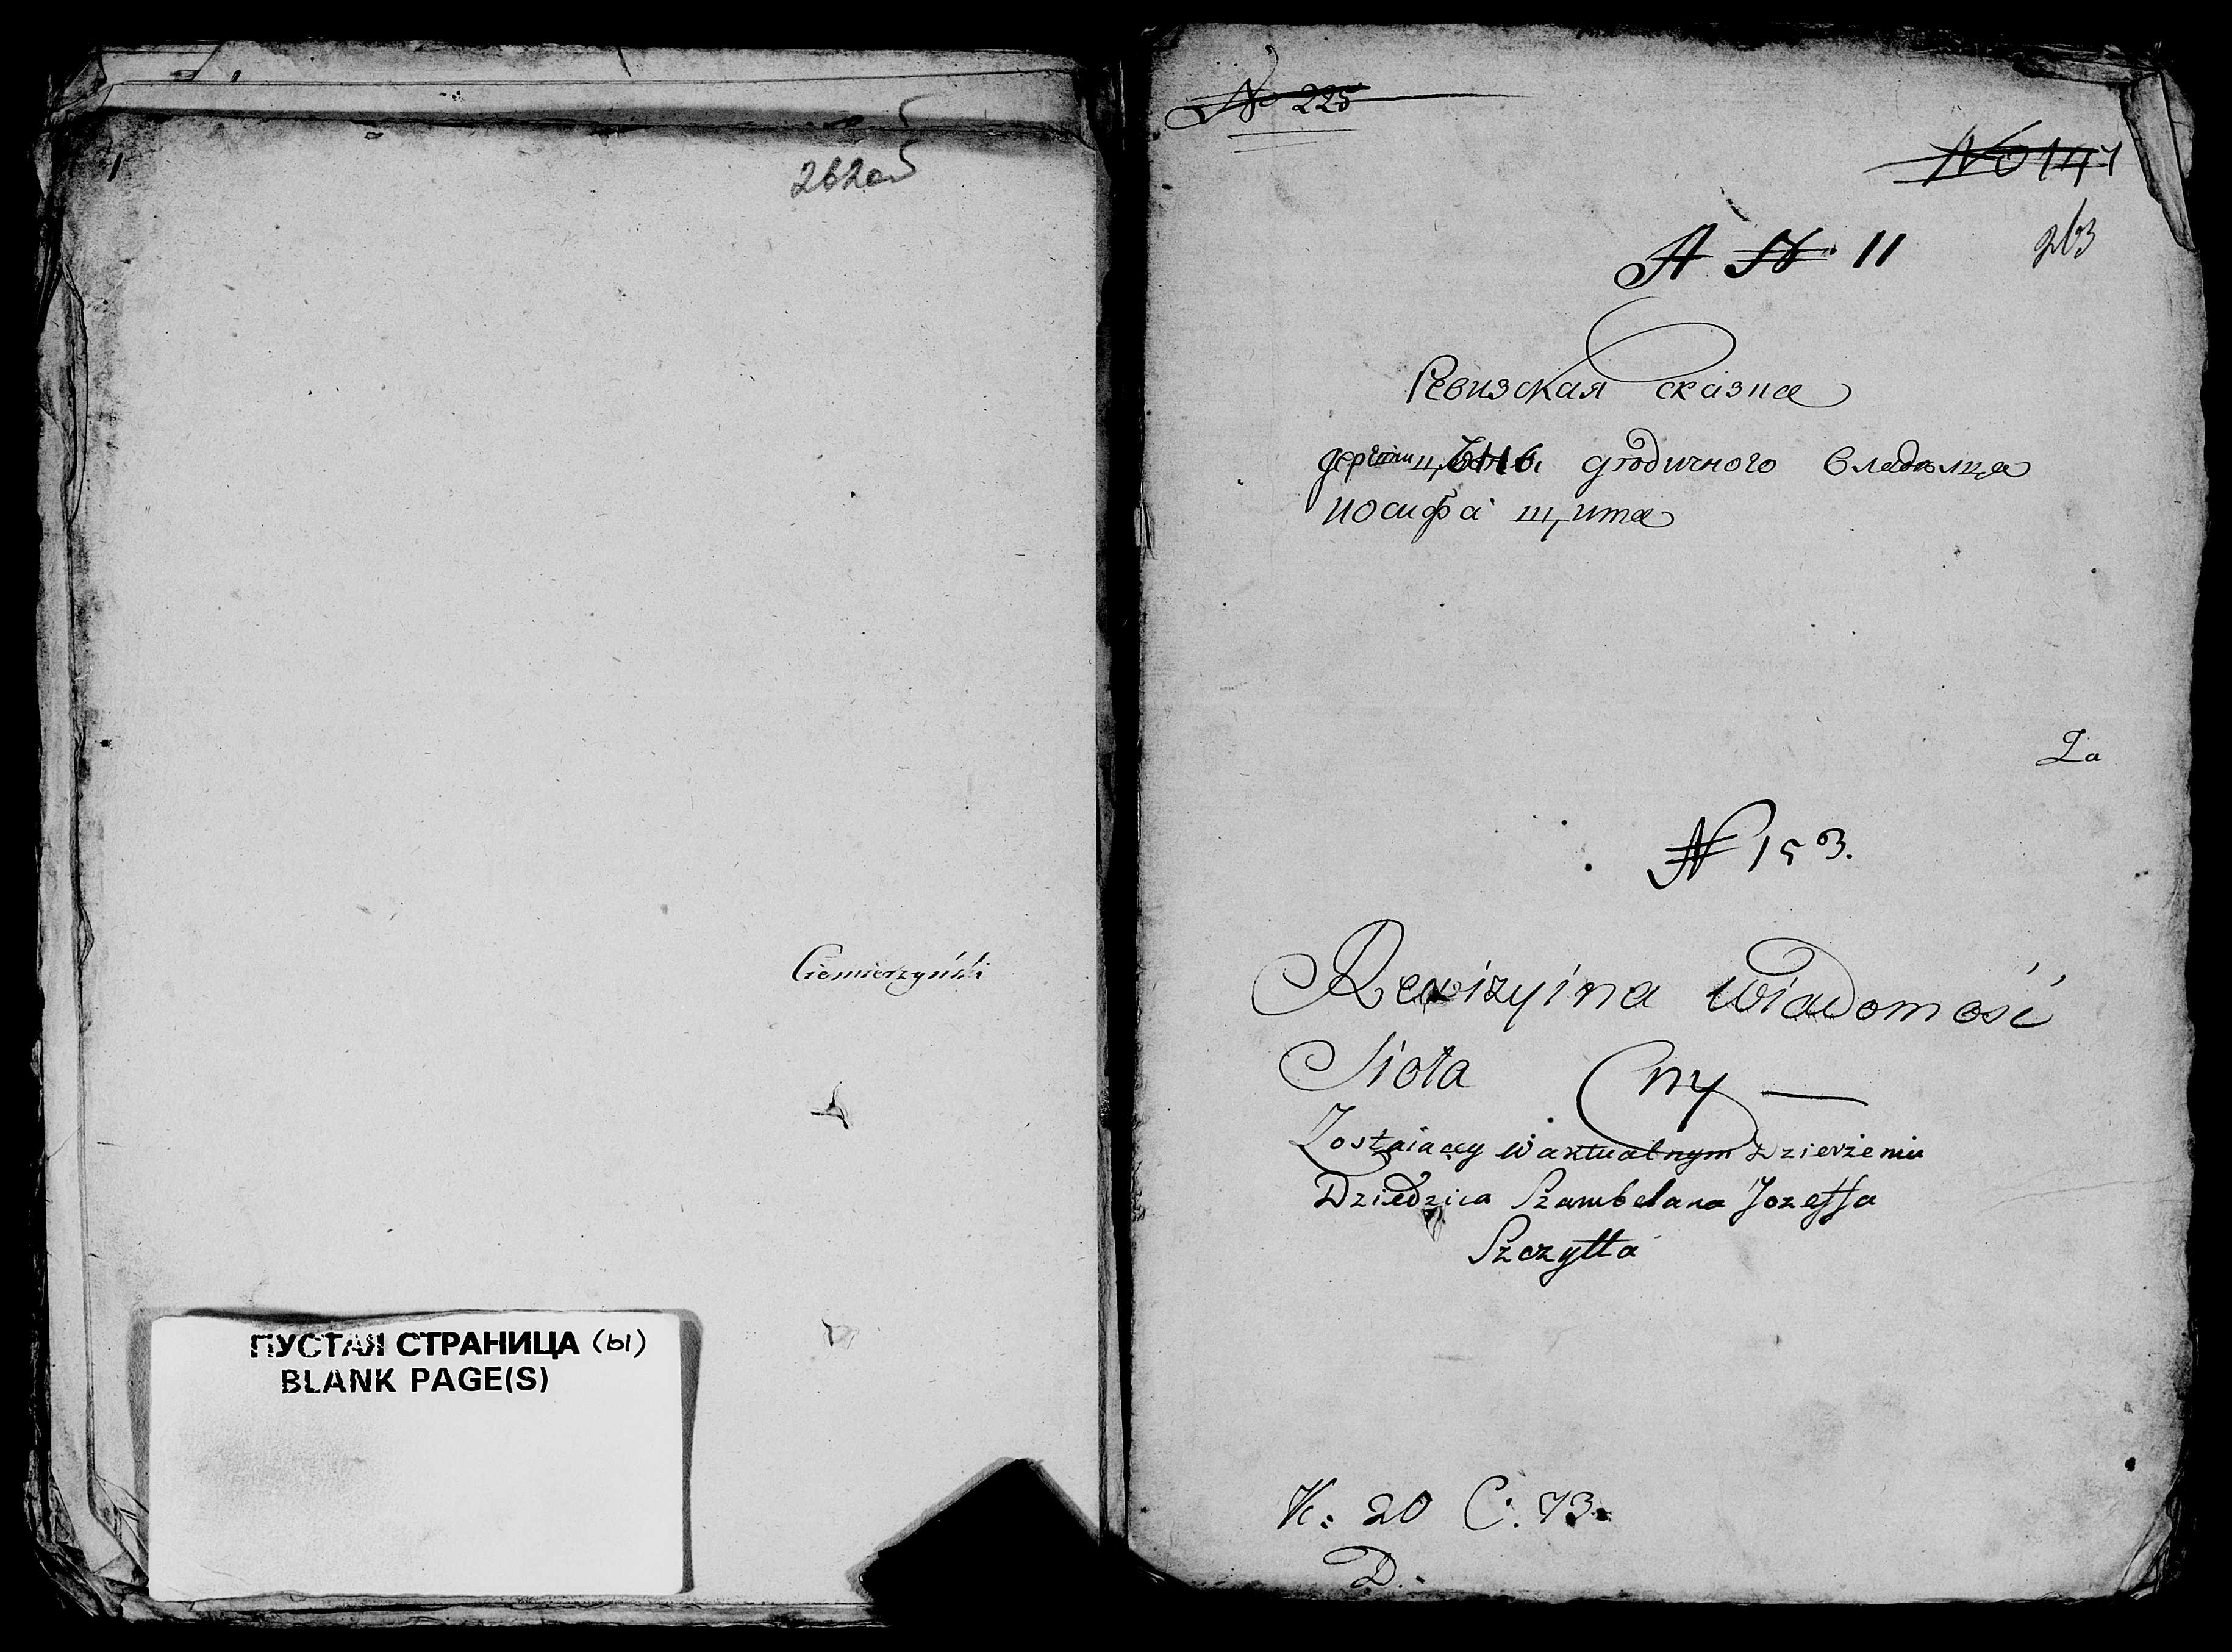 262об
Ciemierzyński
ПУСТАЯ СТРАНИЦА (ы)
BLANK PAGE(S)
№ 225
№ 147
A № 11
263
Ревизская сказка
дюдичного владельца
иосифа щита
La
№ 153.
Rewizyina Wiadomość
Sioła Cny —
Zostaiący w aktualnym Dzierżeniu
Dziedzica Szambelana Jozeffa
Szczytta
K: 20 C: 73.
D: